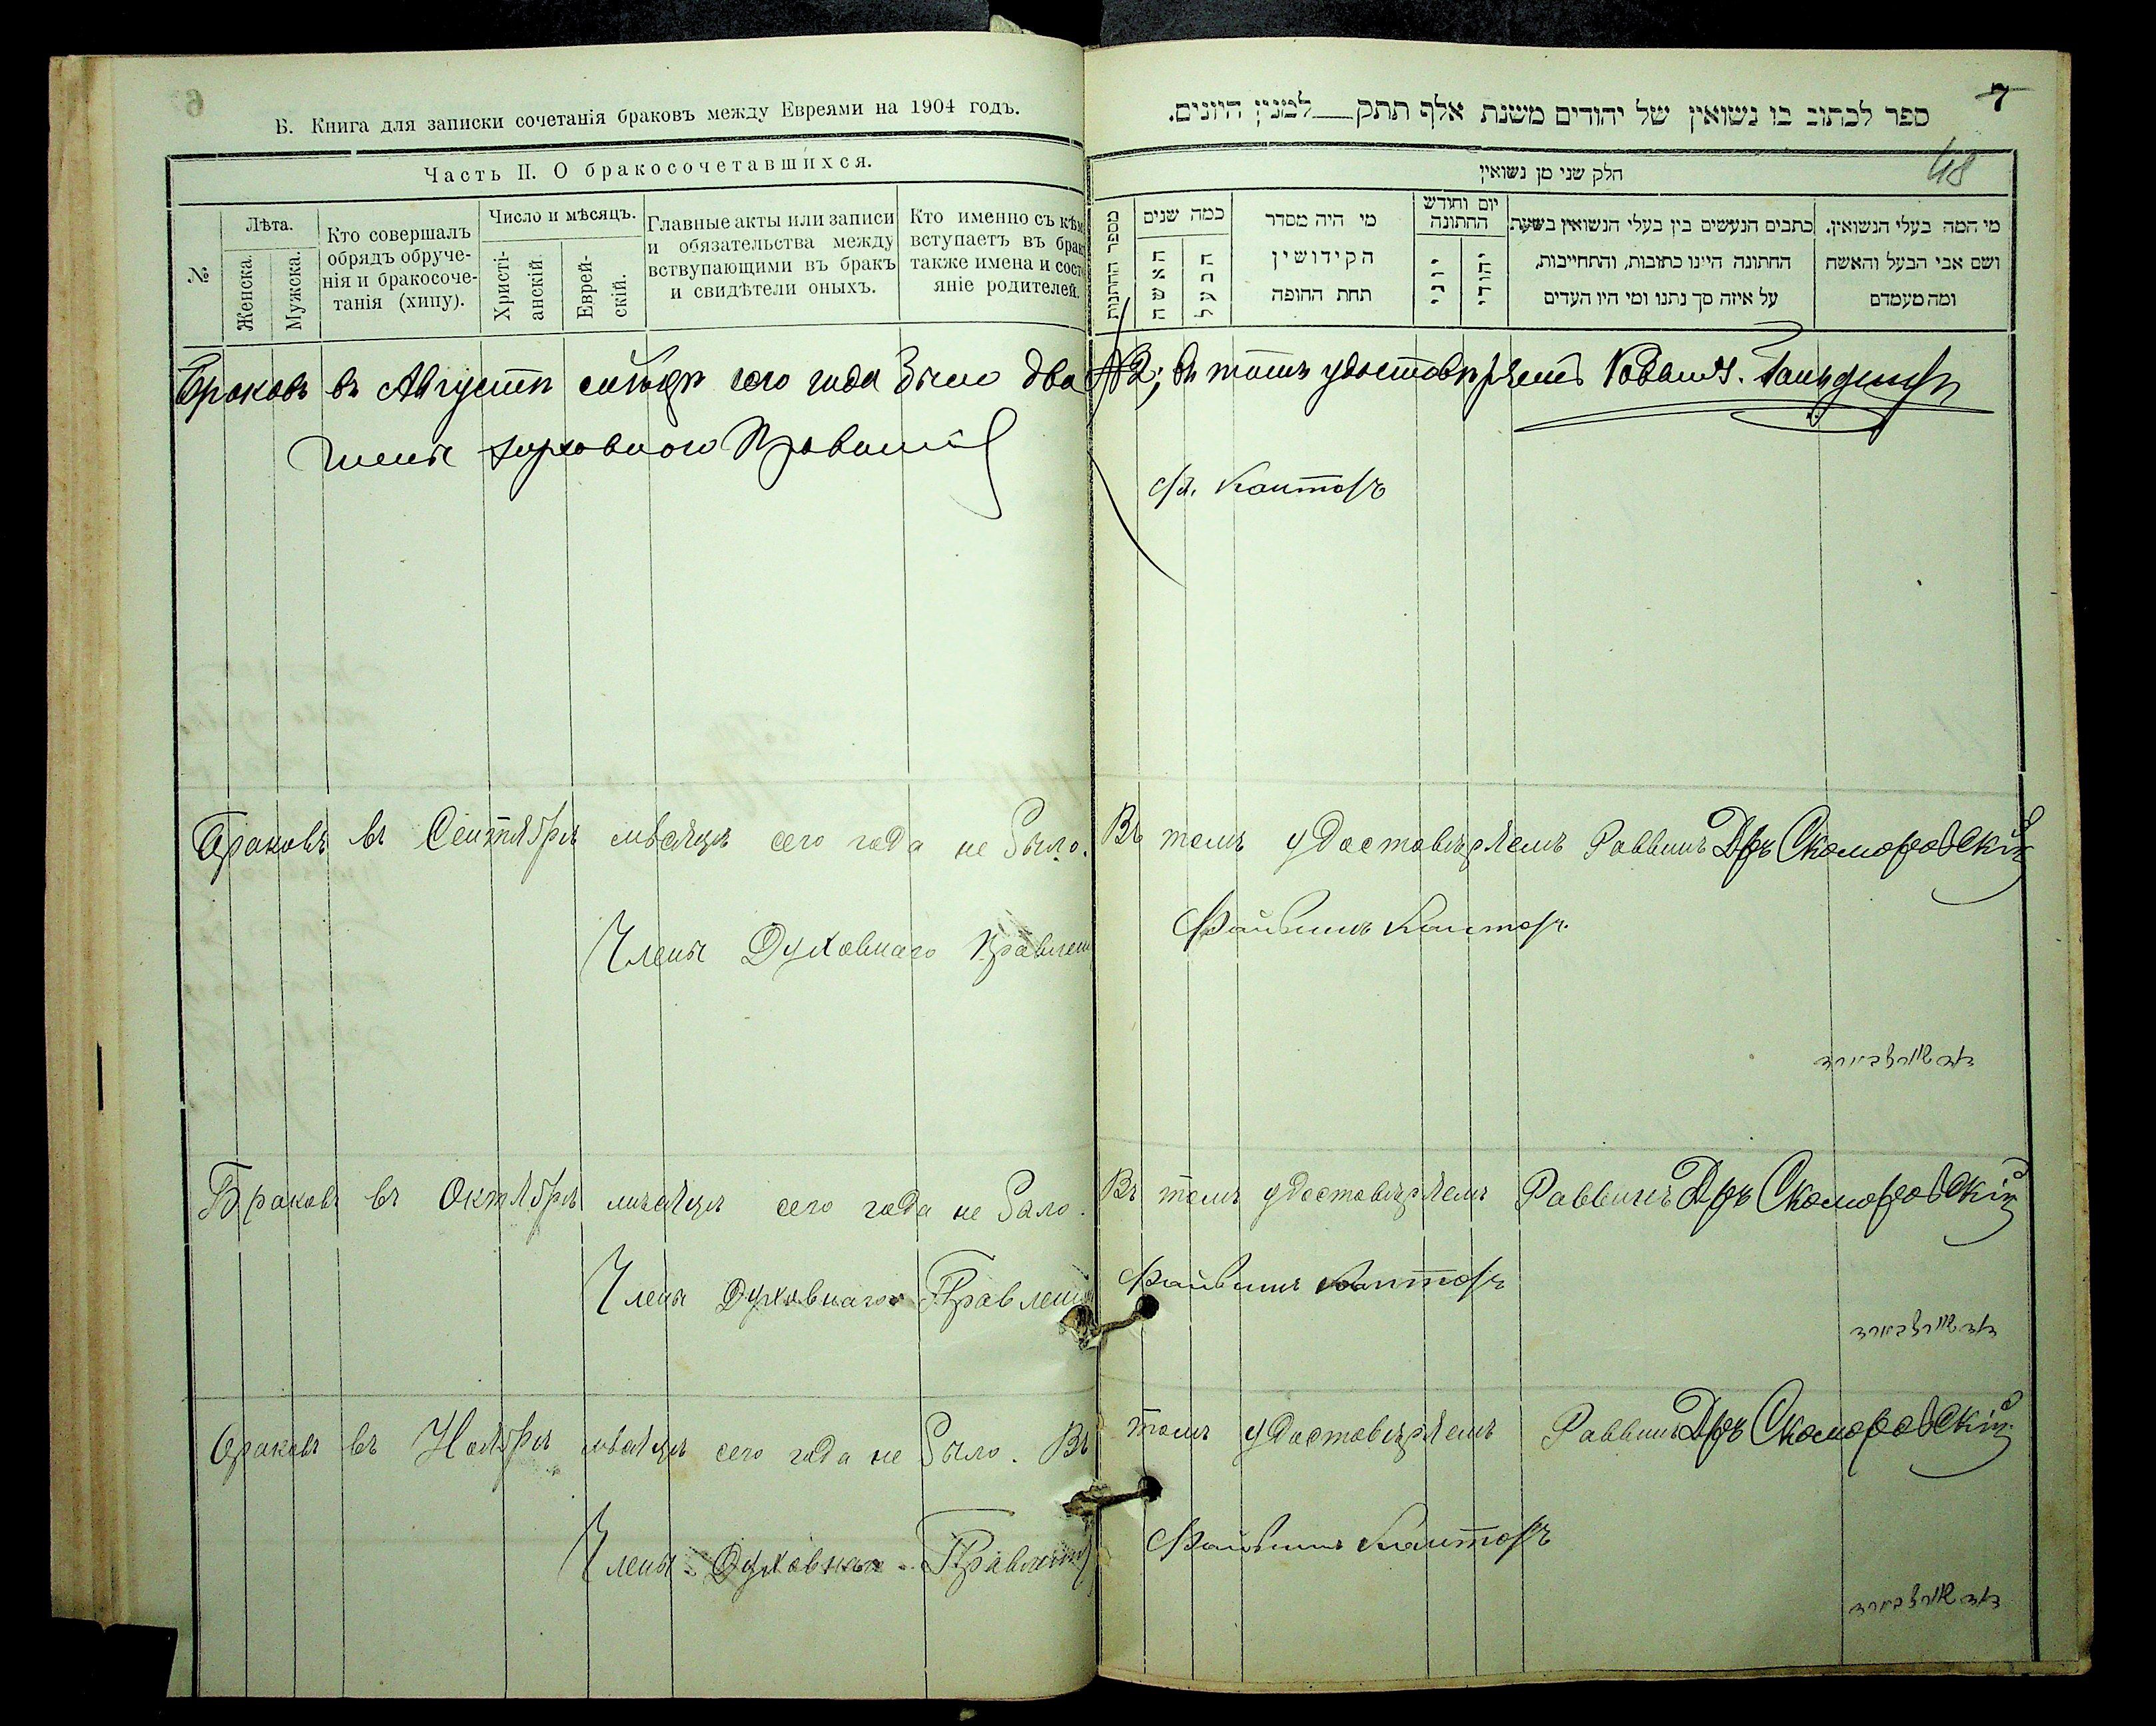 Б. Книга для записки сочетанія браковъ между Евреями на 1904 годъ.
Часть II. О бракосочетавшихся.
№
Лѣта.
Женска.
Мужска.
Кто совершалъ
обрядъ обруче-
нія и бракосоче-
танія (хипу).
Число и мѣсяцъ.
Христі-
анскій.
Еврей-
скій.
Главные акты или записи
и обязательства между
вствупающими въ бракъ
и свидѣтели оныхъ.
Кто именно съ кѣмъ
вступаетъ въ бракъ
также имена и состо
яніе родителей.
Браковъ въ Августѣ сего года было два
Члены Духовнаго Правленія
Браковъ въ Сентябрѣ мѣсяцѣ сего года не было.
Члены Духовнаго Правлен
Браковъ въ Октябрѣ мѣсяцѣ сего года не было.
Члены Духовнаго Правлені
Браковъ въ Ноябрѣ мѣсяцѣ сего года не было. Въ
Члены Духовнаго Правлені
7
ספר לכתוב בו נשואין של יהודים משנת אלף תתק למנין היונים.
48
חלק שני מן נשואין
מספר החתנות
כמה שנים
האשה
הבעל
מי היה מסדר
הקידושין
תחת החופה
יום וחודש
החתונה
יוני
יהודי
כתבים הנעשים בין בעלי הנשואין בשעת
החתונה היינו כתובות, והתחייבות,
על איזה סך נתנו ומי היו העדים
מי המה בעלי הנשואין.
ושם אבי הבעל והאשה
ומה מעמדם
№2; въ томъ удостовѣряемъ Раввинъ
Канторъ
Въ томъ удостовѣряемъ Раввинъ Дръ Скоморовскій
Файвишъ Канторъ.
Въ томъ удостовѣряемъ Раввинъ Дръ Скоморовскій
Файвишъ Канторъ
томъ удостовѣряемъ Раввинъ Дръ Скоморовскій
Файвишъ Канторъ